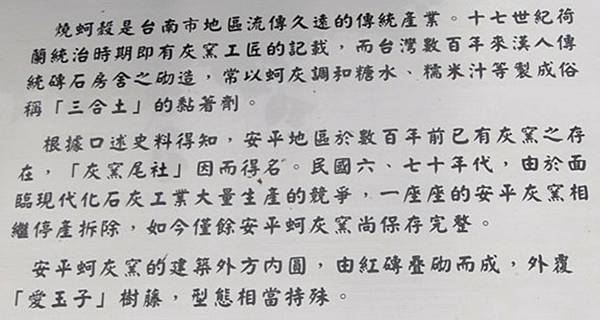 燒蚵殼是台南市地區流傳久遠的傳統產業。十七世紀荷
蘭統治時期即有灰窯工匠的記載,而台灣數百年來漢人傳
統磚石房舍之砌造,常以蚵灰調和糖水、糯米汁等製成俗
稱「三合土」的黏著劑。
根據口述史料得知,安平地區於數百年前已有灰窯之存
在,「灰窯尾社」因而得名。民國六、七十年代,由於面
臨現代化石灰工業大量生產的競爭,一座座的安平灰窯相
繼停產拆除,如今僅餘安平蚵灰窯尚保存完整。
安平蚵灰窯的建築外方內圓,由紅磚疊砌而成,外覆
「愛玉子」樹藤,型態相當特殊。